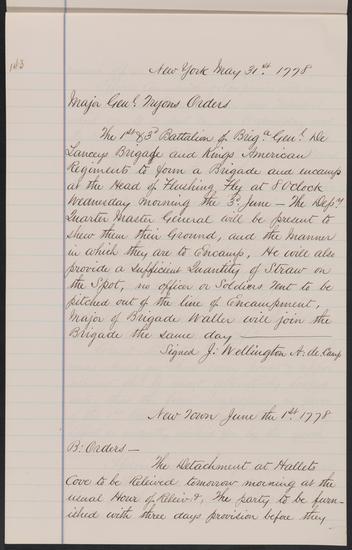 183
New York May 31st. 1778
Major Genl. Tryons Orders
The 1st & 3d Battalion of Brig.a Genl. De
Lanceys Brigade and Kings American
Regiments to form a Brigade and encamp
at the Head of Flushing Fly at 8 OClock
Wednesday morning the 3d. June — The Depy
Quarter Master General will be present to
shew them their Ground, and the Manner
in which they are to Encamp, He will also
provide a Sufficient Quantity of Straw on
the Spot, no officer or Soldiers Tent to be
pitched out of the line of Encampment,
Major of Brigade Waller will join the
Brigade the same day —
Signed J: Wellington A: de. Camp
New Town June the 1st. 1778
B: Orders —
The Detachment at Hallets
Cove to be Releived tomorrow morning at the
usual Hour of Releiv.g, The party to be furn-
ished with three days provision before they